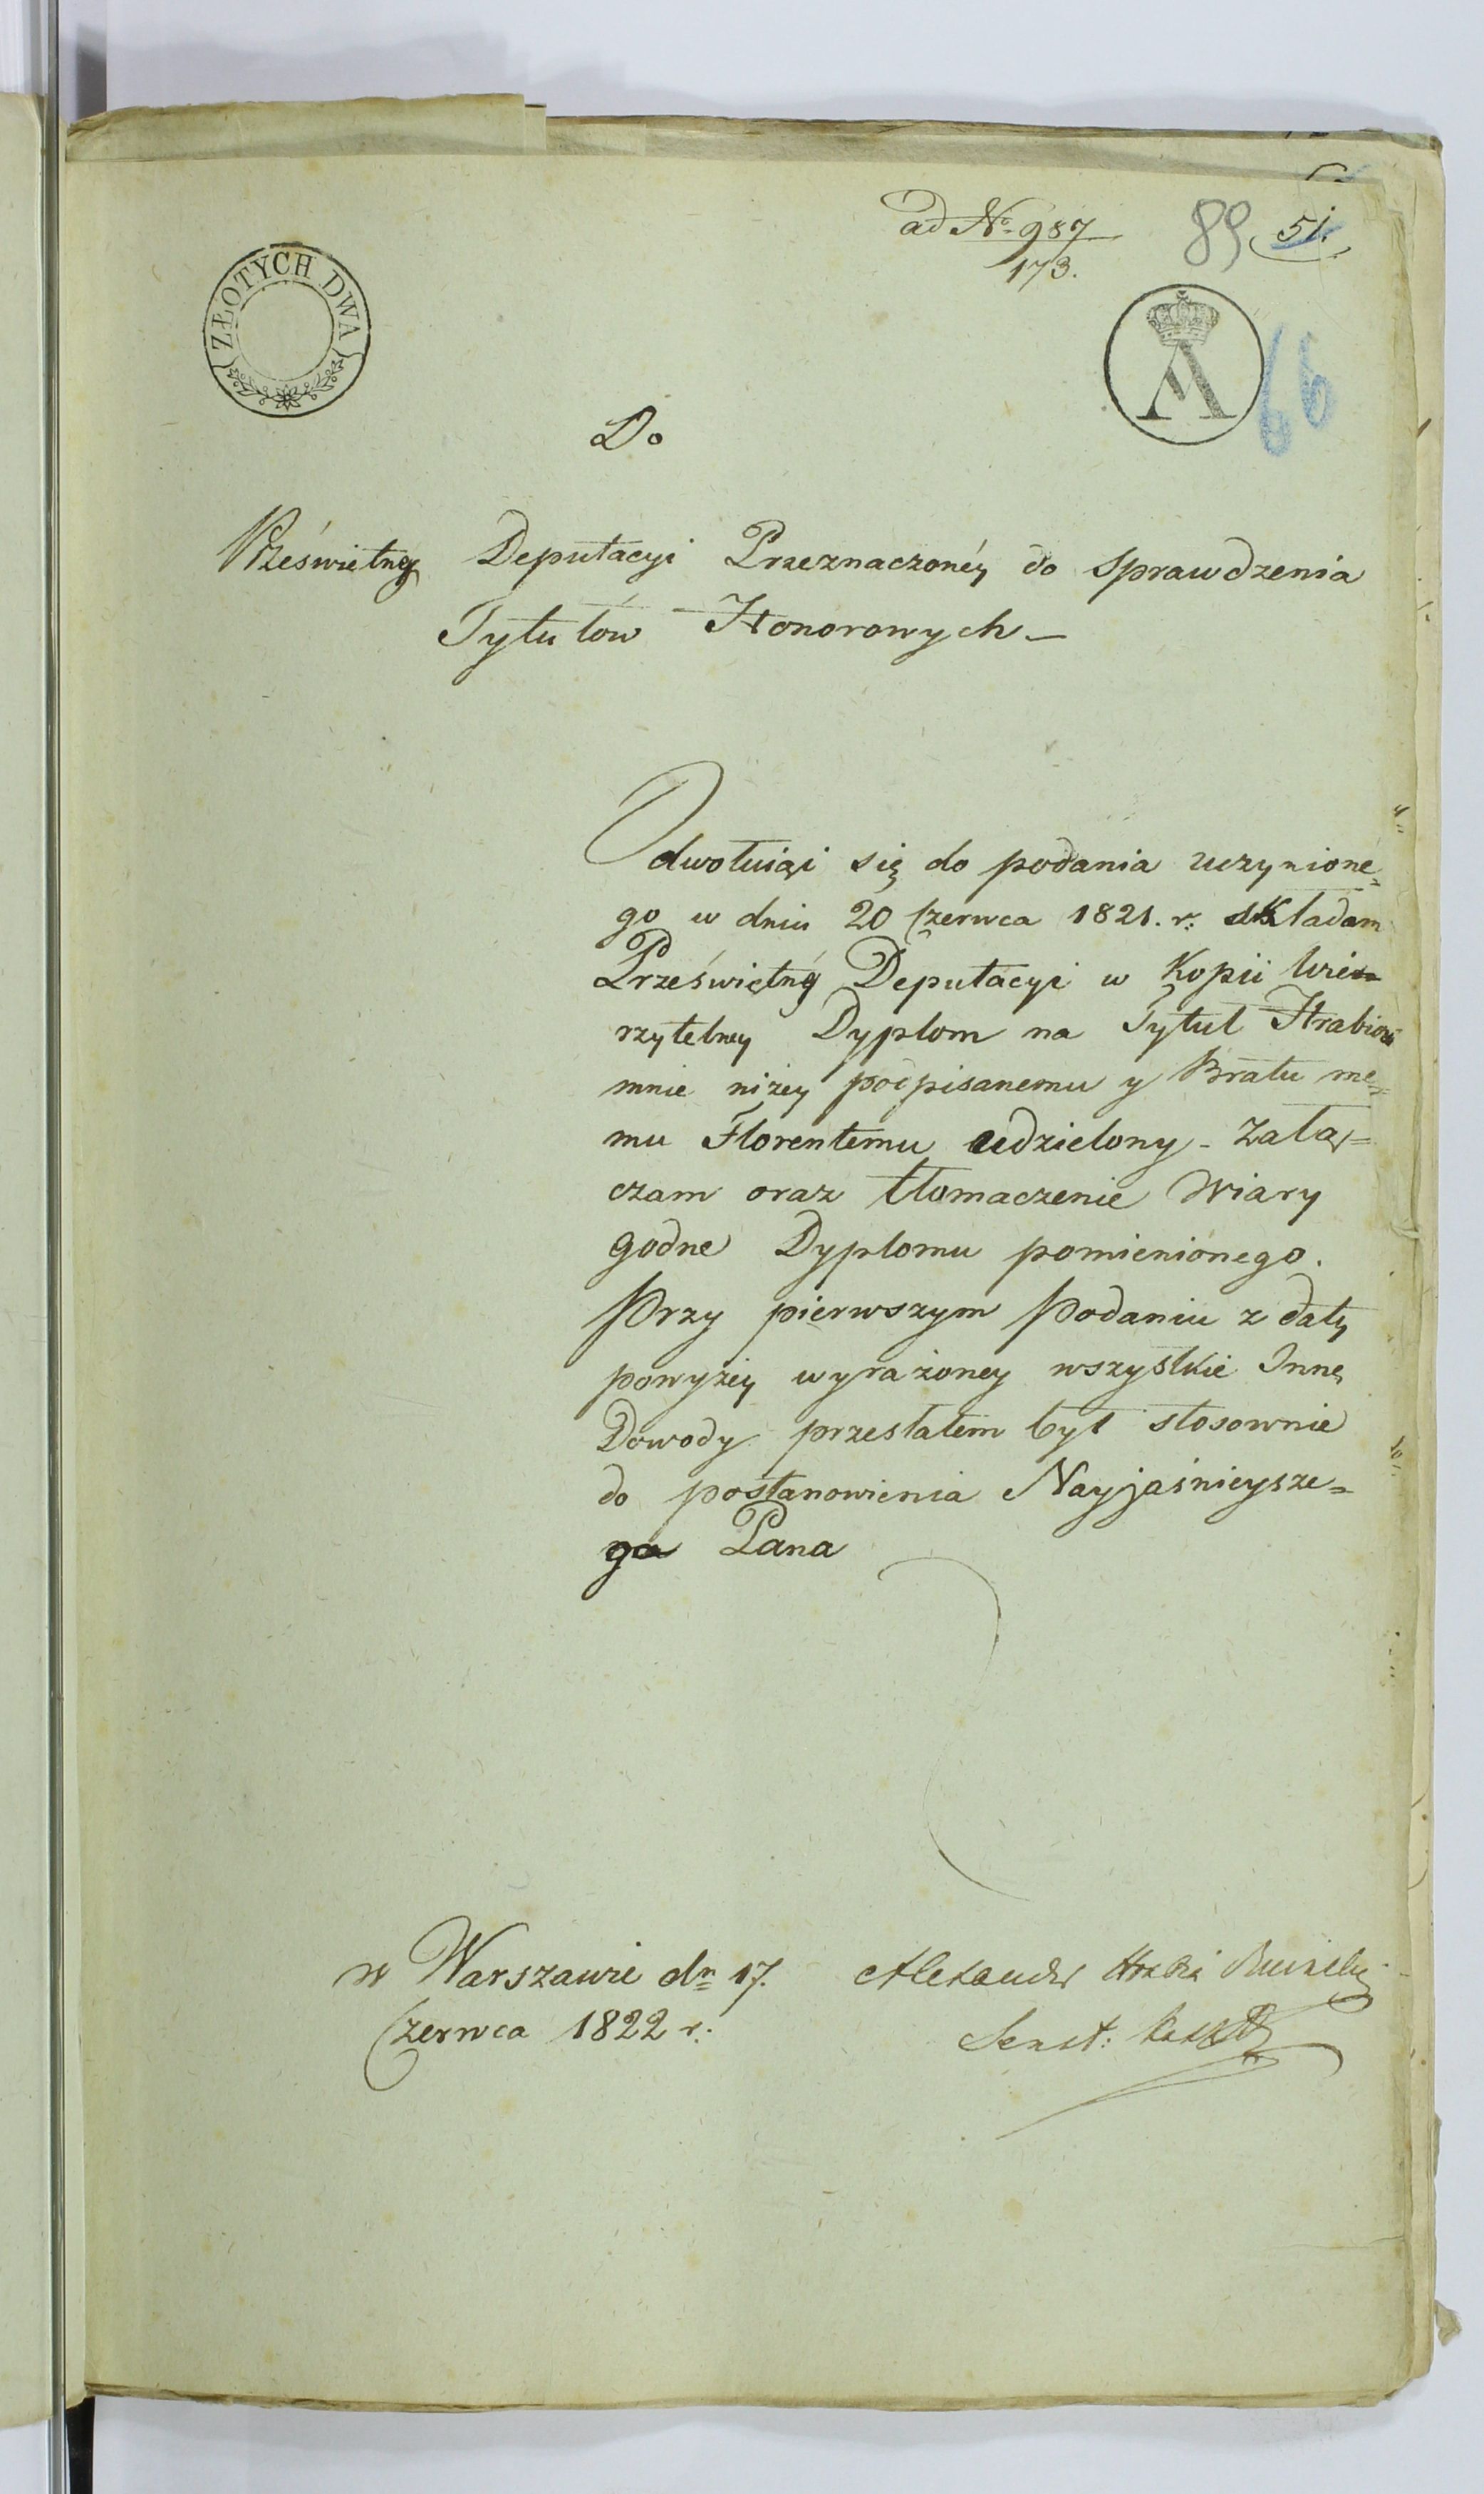 ad No 987
173.
89 51.
ZŁOTYCH DWA
A
66
Do
Prześwietney Deputacyi Przeznaczonéy do Sprawdzenia
Tytułów Honorowych —
Odwołuiąc się do podania uczynione=
go w dniu 20 Czerwca 1821. r: składam
Prześwietnéy Deputacyi w Kopii wie=
rzytelney Dyplom na Tytuł Hrabiów
mnie niżey podpisanemu y Bratu me=
mu Florentemu udzielony – Załą=
czam oraz tłomaczenie Wiary
godne Dyplomu pomienionego.
Przy pierwszym Podaniu z daty
powyżéy wyrażoney wszystkie Inne
Dowody przesłałem był stosownie
do postanowienia Nayjaśnieysze=
go Pana
w Warszawie dn 17.
Czerwca 1822 r.
Alexander Hrabia
Senat: